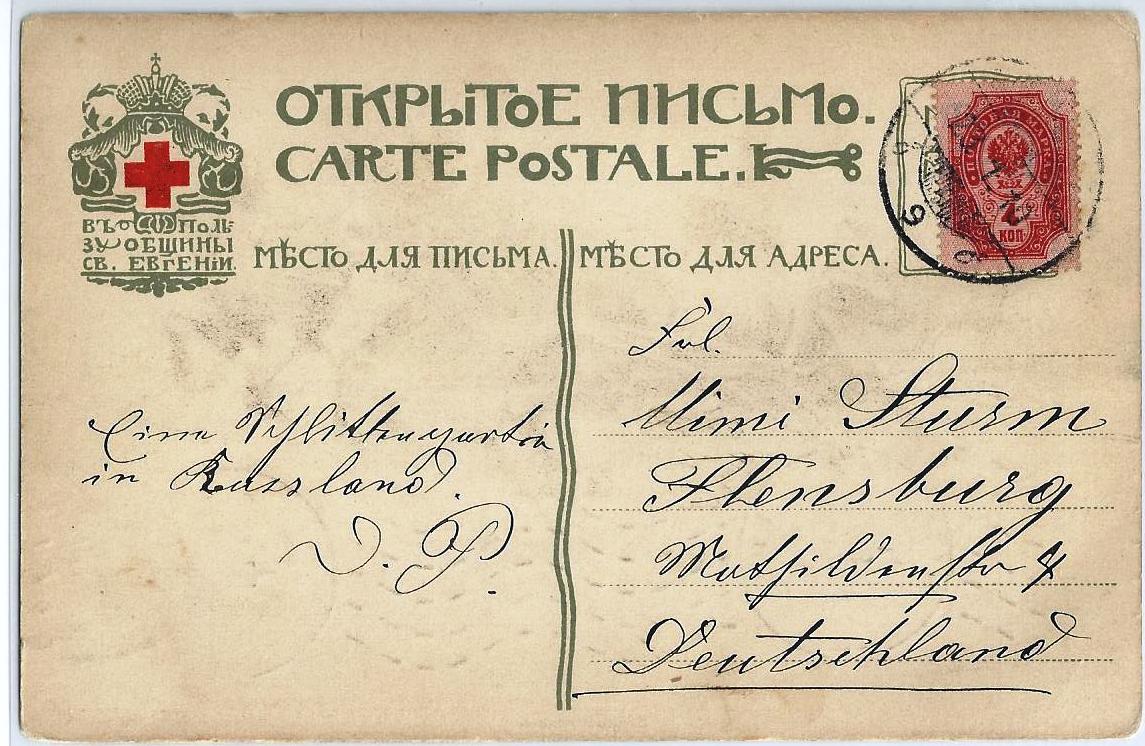 ОТКРЫТОЕ ПИСЬМО.
CARTE POSTALE.
ВЪ ПОЛЬ-
ЗУ ОБЩИНЫ
СВ. ЕВГЕНІИ.
МѢСТО ДЛЯ ПИСЬМА.
МѢСТО ДЛЯ АДРЕСА.
ПОЧТОВАЯ МАРКА
КОП
Eine Schlittenpartie
in Russland.
Frl.
Mimi Sturm
Flensburg
Mathildenstr
Deutschland